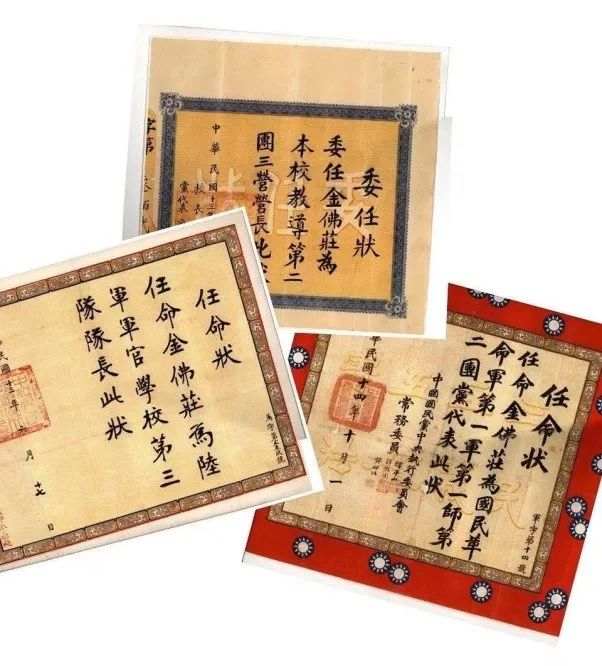 委任狀
委任金佛莊為
本校教導第二
團三營營長此
中華民國十三
校長
黨代表
字第
任命狀
任命金佛莊為陸
軍軍官學校第三
隊隊長此狀
民國十三年
月十七日
任命狀
任命金佛莊為國民革
命軍第一軍第一師第
二團黨代表此狀
中國國民黨中央執行委員會
常務委員
華民國十四年十月一日
軍字第十四號